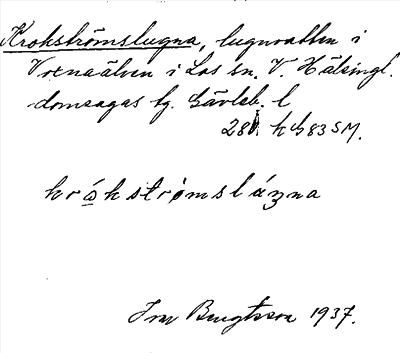 Krokströmslugna, lugnvatten i
Voxnaälven i Los sn. V. Hälsingl.
domsagas tg. Gävleb. l
28 h G 83 SM.
kråkstrømslázna
Ivar Bengtsson 1937.